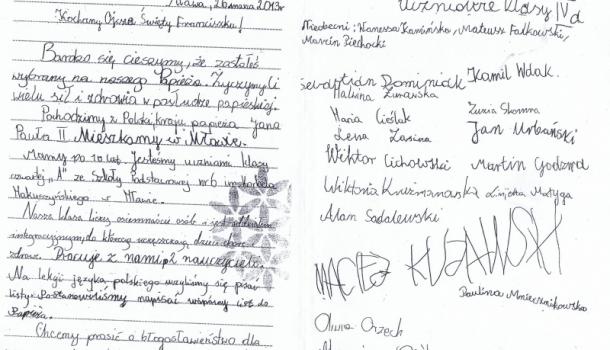 Mława, 26 marca 2013r
Kochany Ojcze Święty Franciszku!
Bardzo się cieszymy, że zostałeś
wybrany na naszego Papieża. Życzymy Ci
wielu sił i zdrowia w posłudze papieskiej.
Pochodzimy z Polski, kraju papieża Jana
Pawła II. Mieszkamy w Mławie.
Mamy po 10 lat. Jesteśmy uczniami klasy
czwartej „A" ze Szkoły Podstawowej nr 6
Makuszyńskiego w Mławie.
Nasza klasa liczy osiemnaście osób i jest
integracyjnym, do którego uczęszczają dzieci chore i
zdrowe. Pracuje z nami 2 nauczycieli.
Na lekcji języka polskiego uczyliśmy się pisać
listy. Postanowiliśmy napisać wspólny list do
Papieża.
Chcemy prosić o błogosławieństwo dla
Uczniowie klasy IVa
Nieobecni: Wanessa Kamińska, Mateusz Falkowski,
Marcin Piechocki
Sebastian Dominiak Kamil Wdak.
Malwina Żurawska
Maria Cieślak Zuzia Skomra
Lena Zasina Jan Urbański
Wiktor Cichowski Martin Godzina
Wiktoria Kuzmanowska Matyga
Alan Sadalewski
MACIEJ
Paulina
Oliwia Orzech